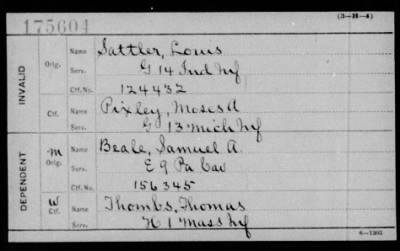 175604
(3—H—4)
INVALID
Orig.
Name Sattler, Louis
Serv. G 14 Ind Inf
Ctf. No. 124432
Ctf.
Name Pixley, Moses A
Serv. G 13 Mich Inf
DEPENDENT
m
Orig.
Name Beale, Samuel A.
Serv. E 9 Pa Cav
Ctf. No. 156345
W
Ctf.
Name Thombs, Thomas
Serv. H 1 Mass Inf